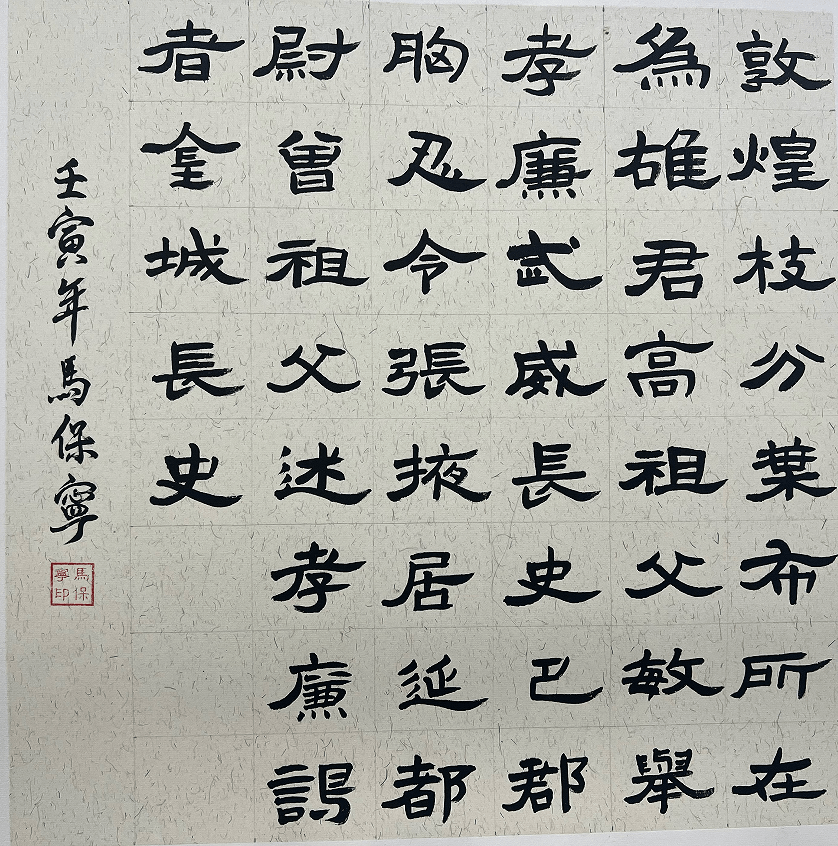 敦煌枝分葉布所在
為雄君高祖父敏舉
孝廉武威長史巴郡
胸忍令張掖居延都
尉曾祖父述孝廉謁
者金城長史
壬寅年馬保寧
馬保寧印